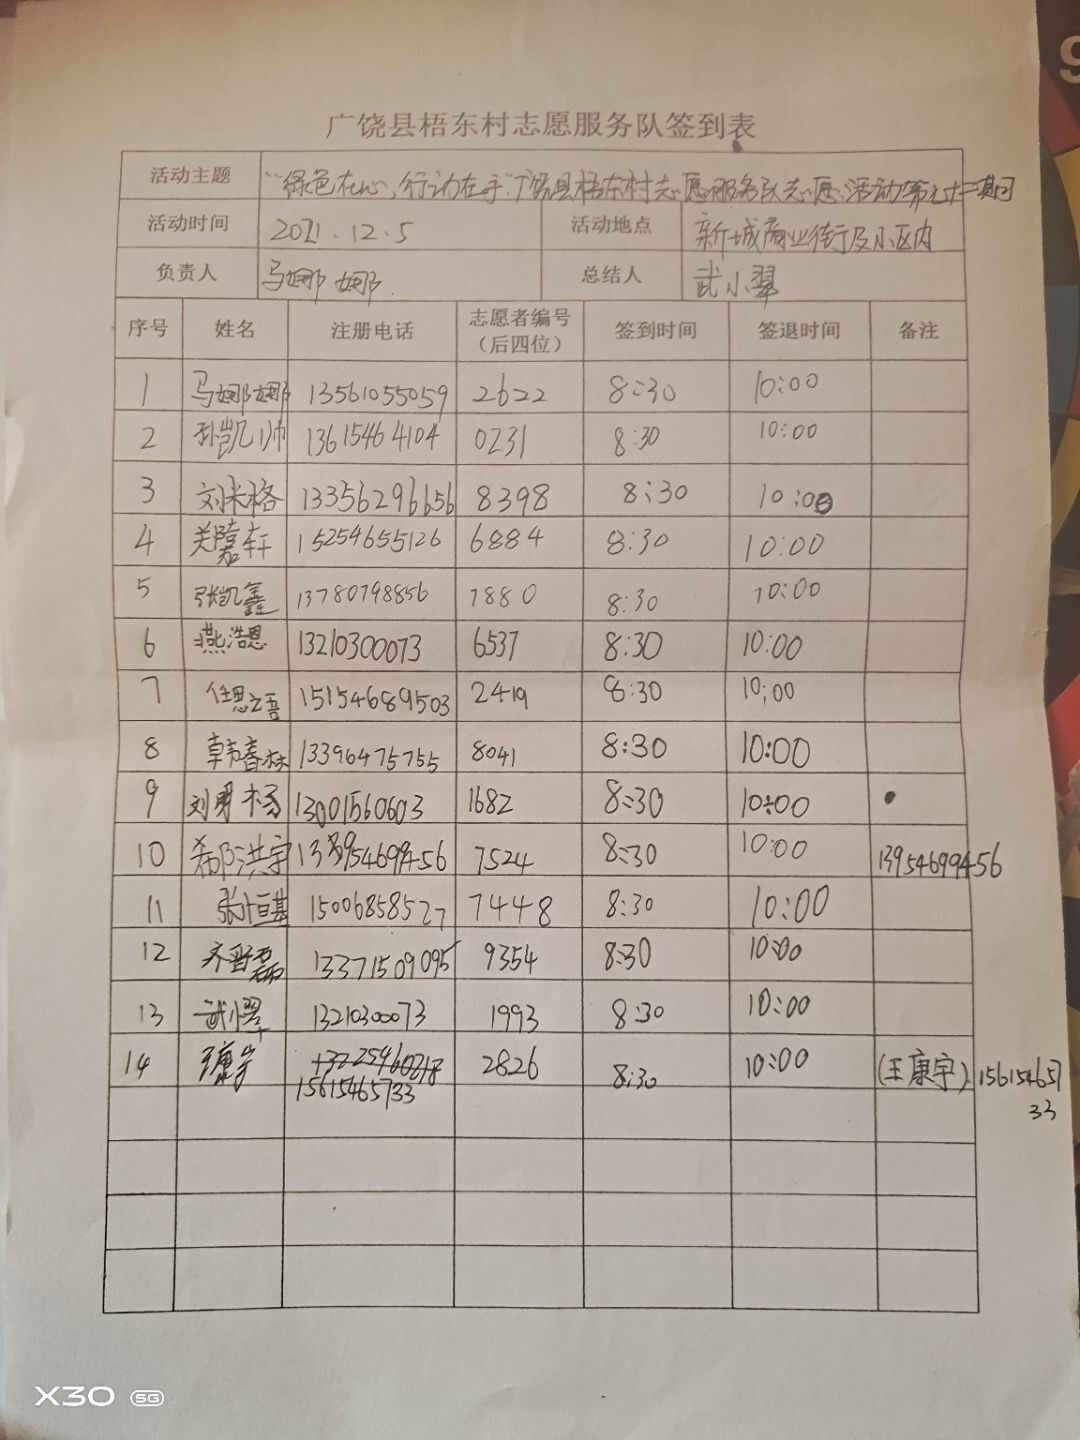 9
广饶县梧东村志愿服务队签到表
活动主题 "绿色在心,行动在手"广饶县梧东村志愿服务队志愿活动第七十二期
活动时间 2021.12.5 活动地点 新城商业街及小区内
负责人 马娜娜 总结人 武小翠
序号 姓名 注册电话 志愿者编号(后四位) 签到时间 签退时间 备注
1 马娜娜 13561055059 2622 8:30 10:00
2 孙凯帅 13615464104 0231 8:30 10:00
3 刘米格 13356296656 8398 8:30 10:00
4 关嘉轩 15254655126 6884 8:30 10:00
5 张凯鑫 13780798856 7880 8:30 10:00
6 燕浩恩 13210300073 6537 8:30 10:00
7 任思之吾 151546689503 2419 8:30 10:00
8 韩春林 13396475755 8041 8:30 10:00
9 刘勇杨 13001560603 1682 8:30 10:00
10 洪宇 7524 8:30 10:00 13954699456
11 张恒基 15006858527 7448 8:30 10:00
12 齐晋磊 13371509095 9354 8:30 10:00
13 武小翠 13210300073 1993 8:30 10:00
14 王康宇 2826 8:30 10:00 (王康宇)15615465733
15615465733
X30 5G